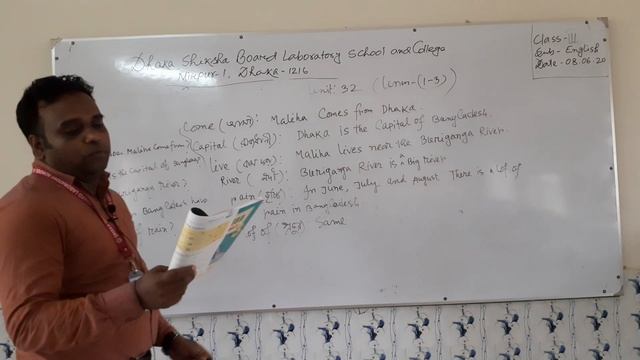 Dhaka Shiksha Board Laboratory School and College
Mirpur-1, Dhaka-1216
Class-III
Sub- English
Date- 08.06.20
Unit: 32 (Lesson-(1-3))
Come (আসা): Maliha Comes from Dhaka.
Capital (রাজধানী): Dhaka is the Capital of Bangladesh.
Live (বাস করা): Maliha lives near the Buriganga River.
River (নদী): Buriganga River is a Big river
rain (বৃষ্টি): In June, July and August There is a lot of
rain in Bangladesh
of of (প্রচুর) Same
Maliha Comes from?
is the Capital of
Buriganga River?
Bangladesh have
of rain?